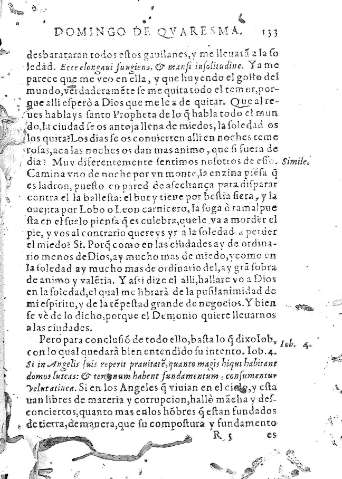 DOMINGO DE QVARESMA. 133
desbarataran todos estos gauilanes, y me lleuarã a la so
ledad. Ecce elongaui fugiens, & mansi in solitudine. Ya me
parece que me veo en ella, y que huyendo el golfo del
mundo, verdaderamẽte se me quita todo el temor, por-
que alli esperò a Dios que me le a de quitar. Que al re-
ues hablays santo Propheta de lo q̃ habla todo el mun
do, la ciudad se os antoja llena de miedos, la soledad os
los quita? Los dias se os conuierten alli en noches teme
rosas, aca las noches os dan mas animo, que si fuera de
dia? Muy diferentemente sentimos nosotros de esso. Simile.
Camina vno de noche por vn monte, la enzina piẽsa q̃
es ladron, puesto en pared de assechança para disparar
contra el la ballesta: el buey tiene por bestia fiera, y la
oueja por Lobo o Leon carnicero, la soga ò ramal pue
sta en el suelo piensa q̃ es culebra, que le va a morder el
pie, y vos al contrario quereys yr à la soledad a perder
el miedo? Si. Porq̃ como en las ciudades ay de ordina-
rio menos de Dios, ay mucho mas de miedo, y como en
la soledad ay mucho mas de ordinario del, ay grã sobra
de animo y valẽtia. Y assi dize el alli, hallare yo a Dios
en la soledad, el qual me librarà de la pusilanimidad de
mi espiritu, y de la tẽpestad grande de negocios. Y bien
se vè de lo dicho, porque el Demonio quiere lleuarnos
a las ciudades.
Pero para conclusiõ de todo ello, basta lo q̃ dixo Iob,
con lo qual quedarà bien entendido su intento. Iob. 4. Iob. 4.
Si in Angelis suis reperit prauitatẽ, quanto magis hi qui habitant
domos luteas: & terrenum habent fundamentum: consumentur
velut a tinea. Si en los Angeles q̃ viuian en el cielo, y esta
uan libres de materia y corrupcion, hallè mãcha y des-
conciertos, quanto mas en los hõbres q̃ estan fundados
de tierra, de manera, que su compostura y fundamento
R 5 es